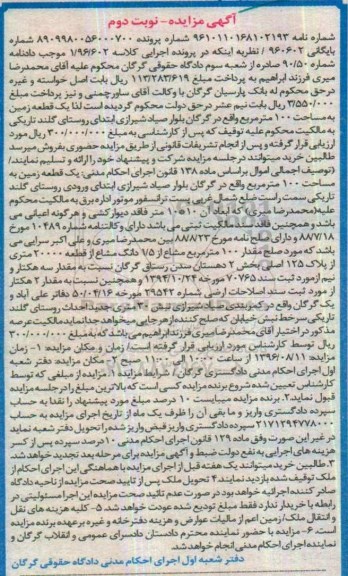 آگهی مزایده - نوبت دوم
شماره نامه ۹۶۱۰۱۱۰۱۶۸۱۰۲۱۹۳ شماره پرونده ۸۹۰۹۹۸۰۰۵۶۰۰۰۷۰۰ شماره
بایگانی ۹۶۰۶۰۲ / نظریه اینکه در پرونده اجرایی کلاسه ۱/۹۶/۶۰۲ موجب دادنامه
شماره ۹۰/۵۰ صادره از شعبه سوم دادگاه حقوقی گرگان محکوم علیه آقای محمدرضا
میری فرزند ابراهیم به پرداخت مبلغ ۱۱۳/۲۸۳/۶۱۹ ریال بابت اصل خواسته و غیره
درحق محکوم له بانک پارسیان گرگان با وکالت آقای ساورچمنی و نیز پرداخت مبلغ
۳/۵۵۰/۰۰۰ ریال بابت نیم عشر درحق دولت محکوم گردیده است لذا یک قطعه زمین
به مساحت ۱۰۰ مترمربع واقع در گرگان بلوار صیاد شیرازی ابتدای روستای گلند تاریکی
به مالکیت محکوم علیه توقیف که پس از کارشناسی به مبلغ ۳۰۰/۰۰۰/۰۰۰ ریال مورد
ارزیابی قرار گرفته و پس از انجام تشریفات قانونی از طریق مزایده حضوری بفروش میرسد
طالبین خرید میتوانند در جلسه مزایده شرکت و پیشنهاد خود را ارائه و تسلیم نمایند/
(توصیف اجمالی اموال براساس ماده ۱۳۸ قانون اجرای احکام مدنی: یک قطعه زمین به
مساحت ۱۰۰ مترمربع واقع در گرگان بلوار صیاد شیرازی ابتدای ورودی روستای گلند
تاریکی سمت راست ضلع شمال غربی پست ترانسفور موتور اداره برق به مالکیت محکوم
علیه(محمدرضا میری که ابعاد آن ۱۰*۱۰ متر فاقد دیوارکشی و هرگونه اعیانی می
باشد و همچنین فاقد سند مالکیت ثبتی می باشد دارای وکالتنامه شماره ۱۰۴۸۹ مورخ
۸۸/۷/۱۸ و دارای صلح نامه مورخ ۸۸۸/۲۳ بین محمدرضا میری و علی اکبر سرایی می
باشد که مورد صلح مقدار ۱۰۰ مترمربع مشاع از ۱/۵ دانگ مشاع از قطعه ۲۰۰۰۰ متری
از پلاک ۱۲۵ اصلی بخش ۲ دهستان سدن رستاق گرگان نسبت به مقدار سه هکتار و
نیم از مورد ثبت سند ۷۰۷۶۵ مورخه ۱۳۹۴/۱۰/۲۴ و همچنین نسبت به مقدار ۲ هکتار
از مورد ثبت سند اصلاحات ارضی شماره ۲۹۵۴۳ مورخه ۵۰/۴/۱۶ دفاتر علی آباد و
یک گرگان واقع در کمربندی صیاد شیرازی نبش ۳۰ متری جدید احداث روستای گلند
تاریکی سرخط نبش خیابان که صلح کننده از هرجایی میخواهد جدا نماید مالکیت عرصه
مذکور در اختیار آقای محمدرضا میری فرزند ابراهیم می باشد که به مبلغ ۳۰۰/۰۰۰/۰۰۰
ریال توسط کارشناس مورد ارزیابی قرار گرفته است/ زمان و مکان مزایده: ۱- زمان
مزایده: ۱۳۹۶/۰۸/۱۱ از ساعت ۱۰:۰۰ الی ۱۱:۰۰ صبح ۲- مکان مزایده: دفتر شعبه
اول اجرای احکام مدنی دادگستری گرگان/ شرایط مزایده: ۱. مزایده از مبلغی که توسط
کارشناس تعیین شده شروع برنده مزایده کسی است که بالاترین مبلغ را در جلسه مزایده
قبول نماید۲. برنده مزایده میبایست ۱۰ درصد مبلغ مورد پیشنهاد را نقدا به حساب
سپرده دادگستری واریز و ما بقی آن را ظرف یک ماه از تاریخ اجرای مزایده به حساب
۲۱۷۱۲۹۴۷۷۸۰۰ سپرده دادگستری واریز قبض واریز شده را تحویل دفتر شعبه نماید
در غیر این صورت وفق ماده ۱۲۹ قانون اجرای احکام مدنی ۱۰ درصد سپرده پس از کسر
هزینه های اجرایی به نفع دولت ضبط و آگهی مزایده برای مرحله بعد تجدید خواهد شد.
۳.طالبین خرید میتوانند یک هفته قبل از اجرای مزایده با هماهنگی این اجرای احکام از
ملک توقیف شده بازدید نمایند.۴ تحویل ملک پس از تایید صحت مزایده از ناحیه دادگاه
صادر کننده اجرائیه خواهد بود در صورت عدم تائید صحت مزایده این اجرا مسئولیتی در
رابطه با خریدار ندارد فقط مبلغ تودیع شده عودت خواهد شد. ۵- کلیه هزینه های نقل
و انتقال ملک/ زمین اعم از مالیات عوارض و هزینه دفترخانه و غیره برعهده برنده مزایده
است. ۶- مزایده با حضور نماینده محترم دادستان دادسرای عمومی و انقلاب گرگان و
نماینده اجرای احکام مدنی انجام خواهد شد.
دفتر شعبه اول اجرای احکام مدنی دادگاه حقوقی گرگان